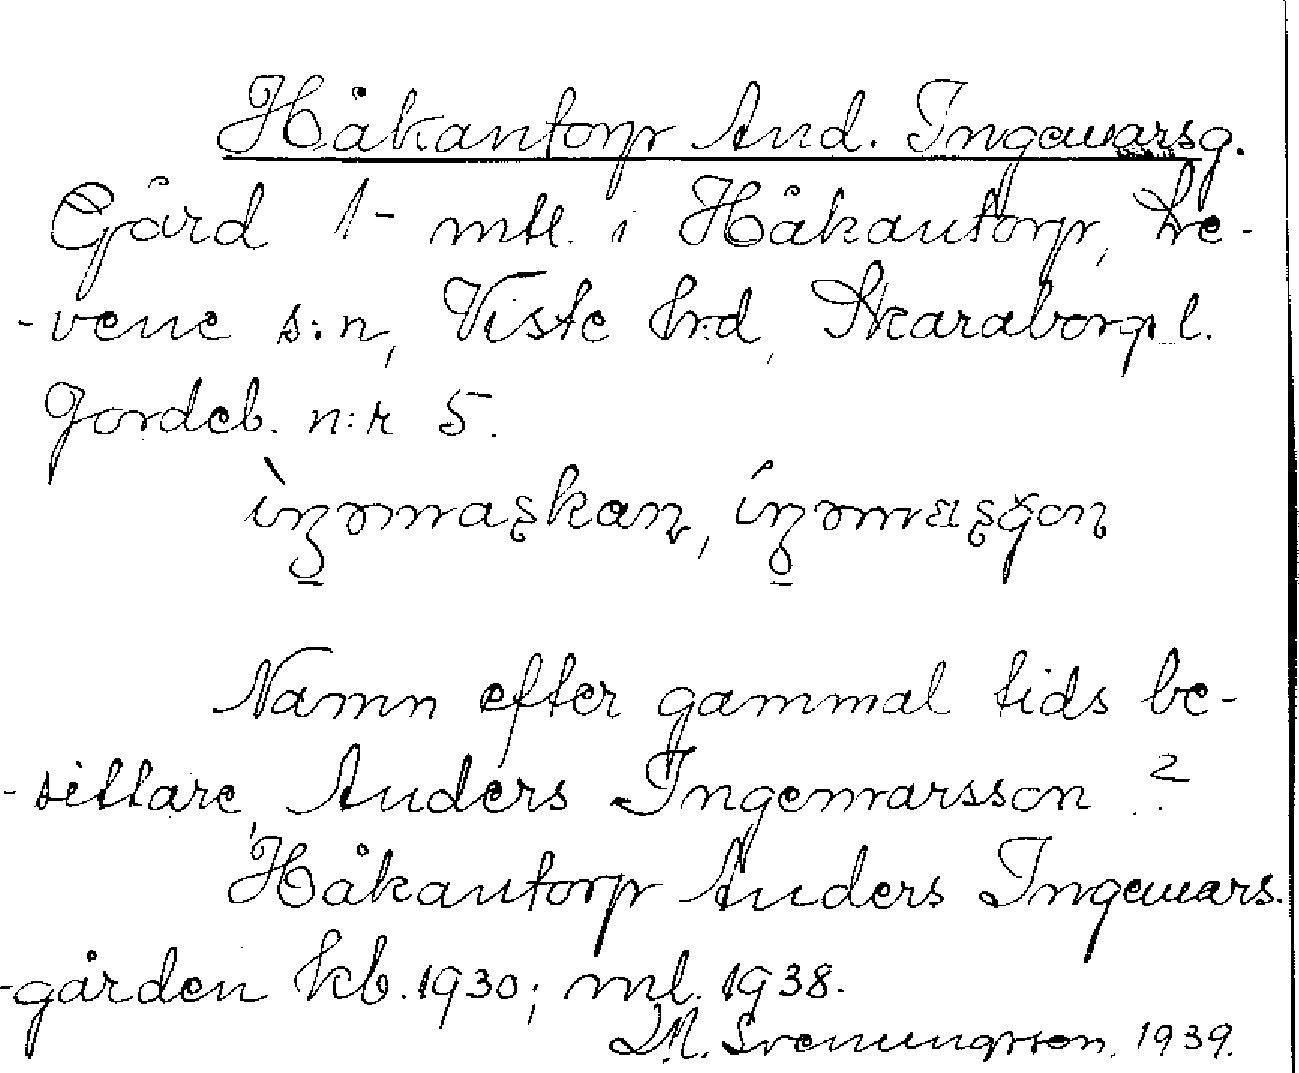 Håkantorp And. Ingewarsg.
Gård 1 - mtl. i Håkantorp, Le-
-vene s:n, Viste hrd, Skaraborgs l.
Jordeb. n:r 5.
Namn efter gammal tids be-
-sittare, Anders Ingemarsson ?
Håkantorp Anders Ingewars-
-gården kb. 1930; ml. 1938.
M. Svenungsson. 1939.